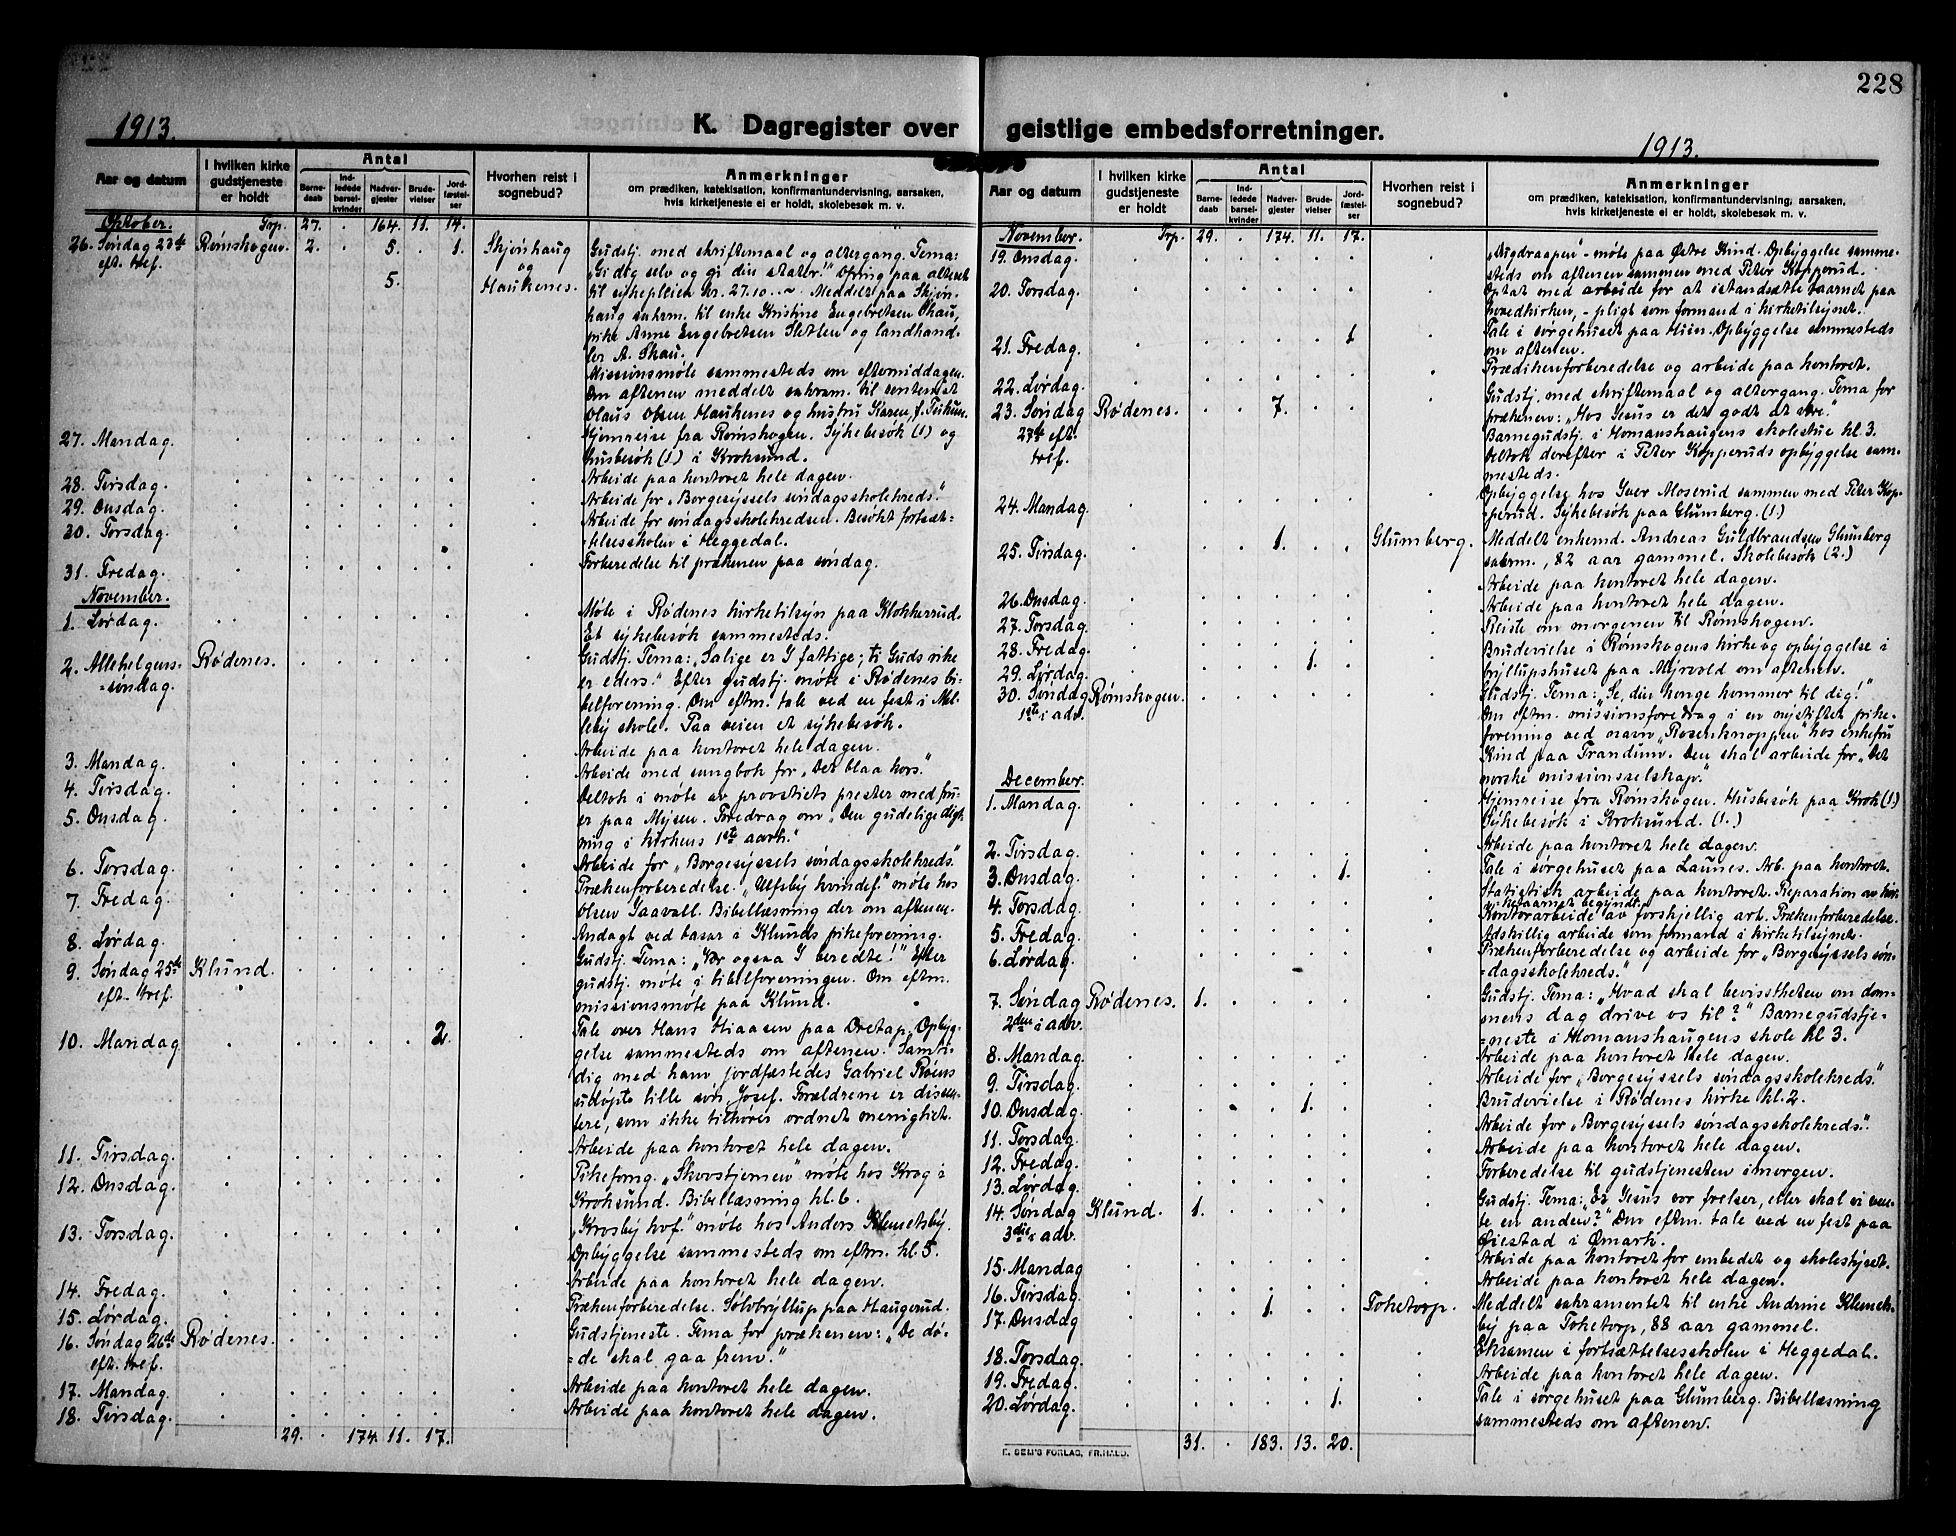 228
1913.
K. Dagregister over
Aar og datum
I hvilken kirke
gudstjeneste
er holdt
Antal
Barne-
daab
Ind-
ledede
barsel-
kvinder
Nadver-
gjester
Brude-
vielser
Jord-
fæstel-
ser
Hvorhen reist i
sognebud?
Anmerkninger
om prædiken, katekisation, konfirmantundervisning, aarsaken,
hvis kirketjeneste ei er holdt, skolebesøk m. v.
Oktober. Trp. 27. . 164. 11. 14.
26. Søndag 23de Rømskogen. 2. . 5. . 1. Skjønhaug Gudstj. med skriftemaal og altergang. Tema:
eft. tref. og „Gi dig selv og gi din skat
5. Haukenes. til sykepleien kr. 27.10. Meddelt paa Skjøn-
haug sakrm. til enke Kristine Engebretsen Skau,
pike Anne Engebretsen Sletten og landhand-
ler A. Skau.
Missionsmøte sammesteds om eftermiddagen.
Om aftenen meddelt sakram. til rentenist
Olaus Olsen Haukenes og hustru Karen f.
27. Mandag. Hjemreise fra Rømskogen. Sykebesøk (1) og
husbesøk (1) i Kroksund.
28. Tirsdag. Arbeide paa kontoret hele dagen.
29. Onsdag. Arbeide for „Borgesyssels søndagsskolekreds."
30. Torsdag. Arbeide for søndagsskolekredsen. Besøkt fortsæt-
telsesskolen i Heggedal.
31. Fredag. Forberedelse til prækenen paa søndag.
November.
1. Lørdag. Møte i Rødenes kirketilsyn paa Klokkerrud.
Et sykebesøk sammesteds.
2. Allehelgens- Rødenes. Gudstj. Tema: „Salige er I fattige; ti Guds rike
=søndag. er eders." Efter gudstj. møte i Rødenes bi-
belforening. Om eftm. tale ved en fest i Mel-
leby skole. Paa veien et sykebesøk.
3. Mandag. Arbeide paa kontoret hele dagen.
4. Tirsdag. Arbeide med sangbok for „Det blaa kors."
5. Onsdag. Deltok i møte av provstiets prester med fru-
er paa Mysen. Foredrag om „Den gudelige digt-
ning i kirkens 1ste aarh."
6. Torsdag. Arbeide for „Borgesyssels søndagsskolekreds."
7. Fredag. Prækenforberedelse. „Ulfsby kvindef." møte hos
Olsen Taavall. Bibellæsning der om aftenen.
8. Lørdag. Andagt ved basar i Klunds pikeforening.
9. Søndag 25de Klund. Gudstj. Tema: „Vær ogsaa I beredte!" Efter
eft. tref. gudstj. møte i bibelforeningen. Om eftm.
missionsmøte paa Klund.
10. Mandag 2. Tale over Hans Hiaasen paa Oretap. Opbyg-
gelse sammesteds om aftenen. Samti-
dig med ham jordfæstedes Gabriel Røens
udøpte lille søn, Josef. Forældrene er dissen-
tere, som ikke tilhører ordnet menighet.
11. Tirsdag. Arbeide paa kontoret hele dagen.
12. Onsdag. Pikefong. „Skovstjernen" møte hos Krog i
Kroksund. Bibellæsning kl. 6.
13. Torsdag. „Krosby kvf." møte hos Anders Klemetsby.
Opbyggelse sammesteds om eftm. kl. 5.
14. Fredag. Arbeide paa kontoret hele dagen.
15. Lørdag. Prækenforberedelse. Sølvbryllup paa Haugerud.
16. Søndag 26de Rødenes. Gudstjeneste. Tema for prækenen: „De dø-
eft. tref. =de skal gaa frem."
17. Mandag Arbeide paa kontoret hele dagen.
18. Tirsdag. Arbeide paa kontoret hele dagen.
29. . 174. 11. 17.
geistlige embedsforretninger.
1913.
Aar og datum
I hvilken kirke
gudstjeneste
er holdt
Antal
Barne-
daab
Ind-
ledede
barsel-
kvinder
Nadver-
gjester
Brude-
vielser
Jord-
fæstel-
ser
Hvorhen reist i
sognebud?
Anmerkninger
om prædiken, katekisation, konfirmantundervisning, aarsaken,
hvis kirketjeneste ei er holdt, skolebesøk m. v.
November. Trp. 29. . 174. 11. 17.
19. Onsdag. „Dugdraapen"-møte paa Østre Kind. Opbyggelse samme-
steds om aftenen sammen med Peter Kopperud.
20. Torsdag. Optat med arbeide for at istandsætte taarnet paa
hovedkirken, - pligt som formand i kirketilsynet.
21. Fredag. 1 Tale i sørgehuset paa Hiin. Opbyggelse sammesteds
om aftenen.
22. Lørdag. Prædikenforberedelse og arbeide paa kontoret.
23. Søndag Rødenes. 7. Gudstj. med skriftemaal og altergang. Tema for
27de eft. prækenen: „Hos Jesus er det godt at være."
tref. Barnegudstj. i Homanshaugens skolestue kl. 3.
Deltok derefter i Peter Kopperuds opbyggelse sam-
mesteds.
24. Mandag. Opbyggelse hos Iver Moserud sammen med Peter Kop-
=perud. Sykebesøk paa Glumberg. (1)
25. Tirsdag. 1. Glumberg. Meddelt enkemd. Andreas Guldbrandsen Glumberg
sakrm., 82 aar gammel. Skolebesøk (2.)
26. Onsdag. Arbeide paa kontoret hele dagen.
27. Torsdag. Arbeide paa kontoret hele dagen.
28. Fredag. Reiste om morgenen til Rømskogen.
29. Lørdag. 1. Brudevielse i Rømskogens kirke og opbyggelse i
bryllupshuset paa Myrvold om aftenen.
30. Søndag Rømskogen. Gudstj. Tema: „Se, din konge kommer til dig!"
1ste i adv. Om eftm. missionsforedrag i en nystiftet pike-
forening ved navn „Rosenknoppen" hos enkefru
Kind paa Trandum. Den skal arbeide for „Det
norske missionsselskap."
December.
1. Mandag. Hjemreise fra Rømskogen. Husbesøk paa Krok (1)
Sykebesøk i Kroksund. (1.)
2. Tirsdag. Arbeide paa kontoret hele dagen.
3. Onsdag. 1. Tale i sørgehuset paa Launes. Arb. paa kontoret.
4. Torsdag. Statistisk arbeide paa kontoret. Reparation av kir-
ketaarnet begyndt.
5. Fredag. Kontorarbeide av forskjellig art. Prækenforberedelse.
Adskillig arbeide som formand i kirketilsynet.
6. Lørdag. Prækenforberedelse og arbeide for „Borgesyssels søn-
=dagsskolekreds."
7. Søndag Rødenes. 1. Gudstj. Tema: „Hvad skal bevisstheten om dom-
2den i adv. mens dag drive os til?" Barnegudstje-
=neste i Homanshaugens skole kl. 3.
8. Mandag. Arbeide paa kontoret hele dagen.
9. Tirsdag. Arbeide for „Borgesyssels søndagsskolekreds."
10. Onsdag. 1. Brudevielse i Rødenes kirke kl. 2.
11. Torsdag. Arbeide for „Borgesyssels søndagsskolekreds".
12. Fredag. Arbeide paa kontoret hele dagen.
13. Lørdag. Forberedelse til gudstjenesten imorgen.
14. Søndag Klund. 1. Gudstj. Tema: „Er Jesus vor frelser, eller skal vi ven-
3die i adv. te en anden?" Om eftm. tale ved en fest paa
Øiestad i Ømark.
15. Mandag Arbeide paa kontoret for embedet og skolestyret.
16. Tirsdag. Arbeide paa kontoret hele dagen.
17. Onsdag 1. Toketorp. Meddelt sakramentet til enke Andrine Klemets-
by paa Toketorp, 88 aar gammel.
18. Torsdag. Eksamen i fortsættelsesskolen i Heggedal.
19. Fredag. Arbeide paa kontoret hele dagen.
20. Lørdag. 1. Tale i sørgehuset paa Glumberg. Bibellæsning
sammesteds om aftenen.
31. . 183. 13. 20.
E. SEM'S FORLAG, FR.HALD.